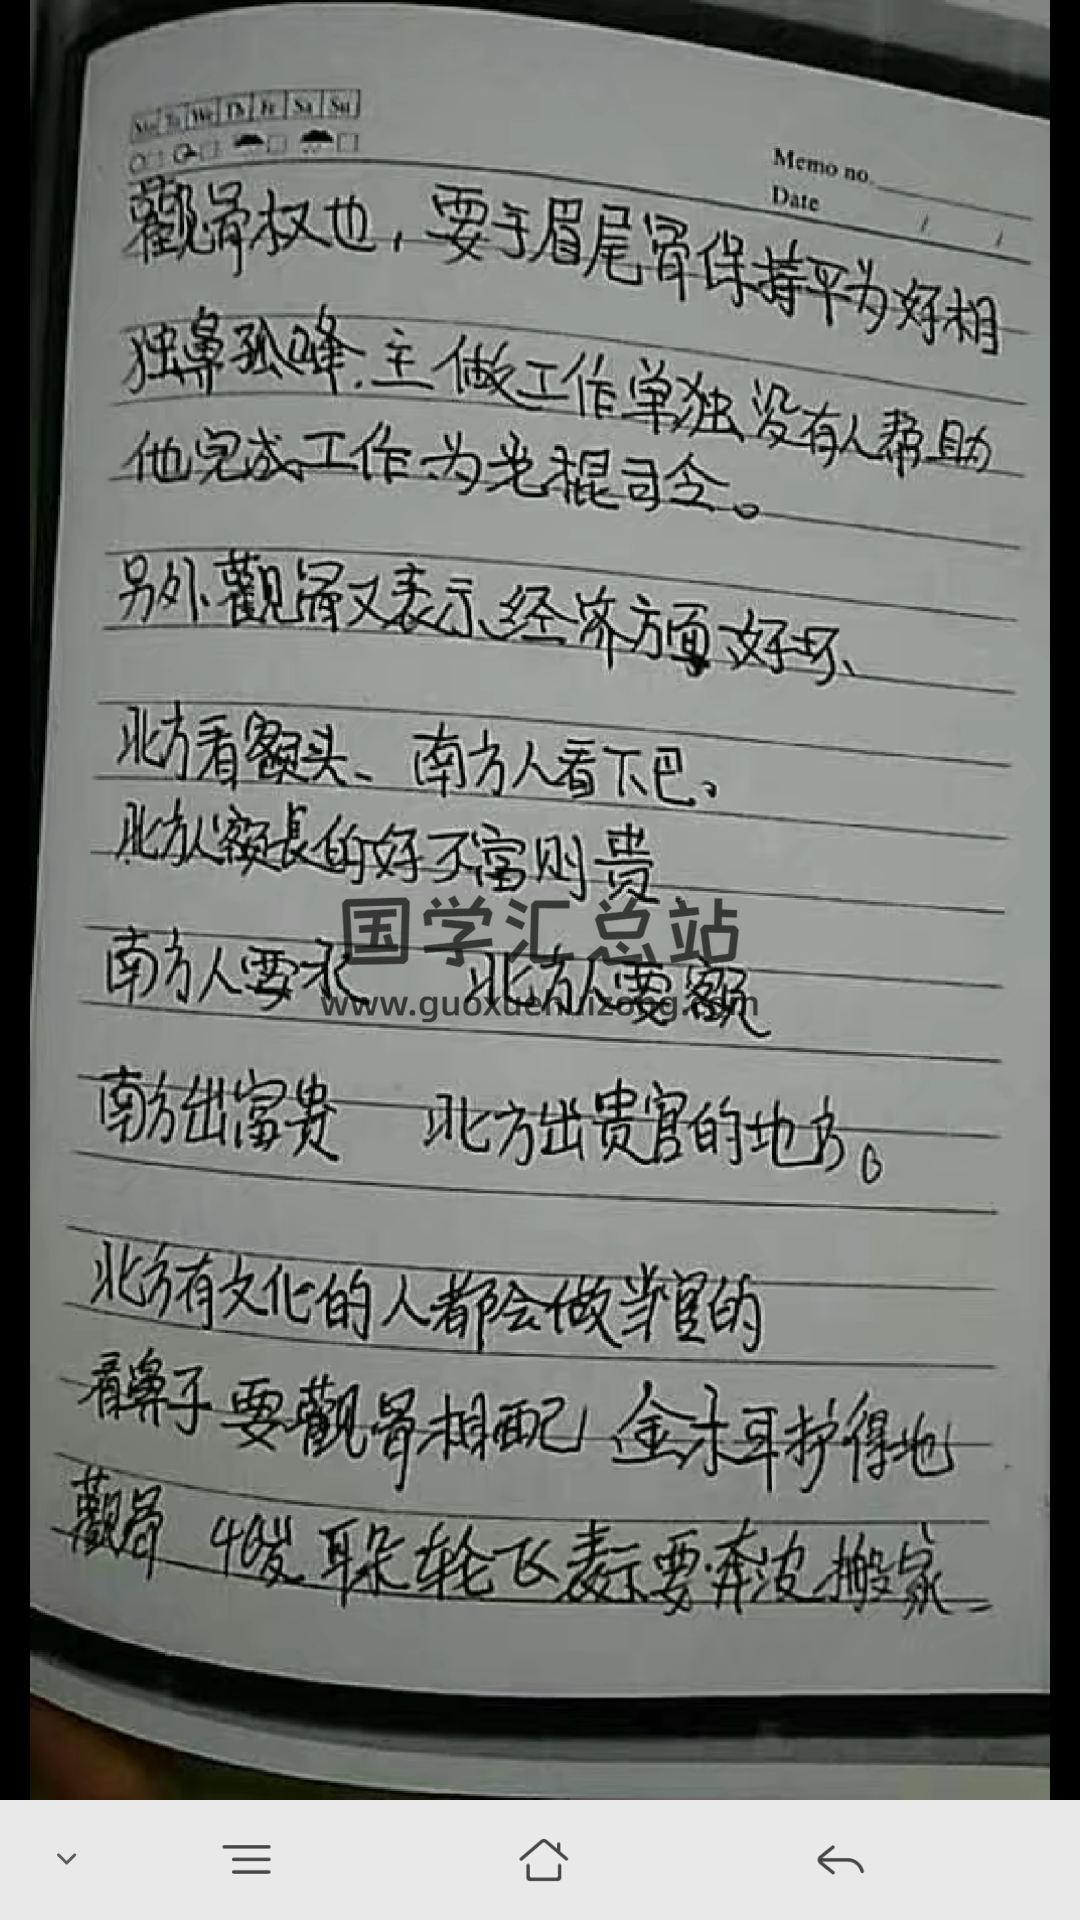 Mo Tu We Th Fr Sa Su
Memo no.
Date / /
觀骨权也，要于眉尾骨保持平为好相
独鼻孤峰、主做工作单独没有人帮助
他完成工作为光棍司令。
另外觀骨又表示经济方面好坏、
北方看额头、南方人看下巴、
北方人额長的好不富则贵
国学汇总站
南方人要水 北方人要额
www.guoxuehuizong.com
南方出富贵 北方出贵官的地方。
北方有文化的人都会做当官的
看鼻子要觀骨相配 金木耳护得地
觀骨 46岁 耳朵轮飞表示要奔波搬家